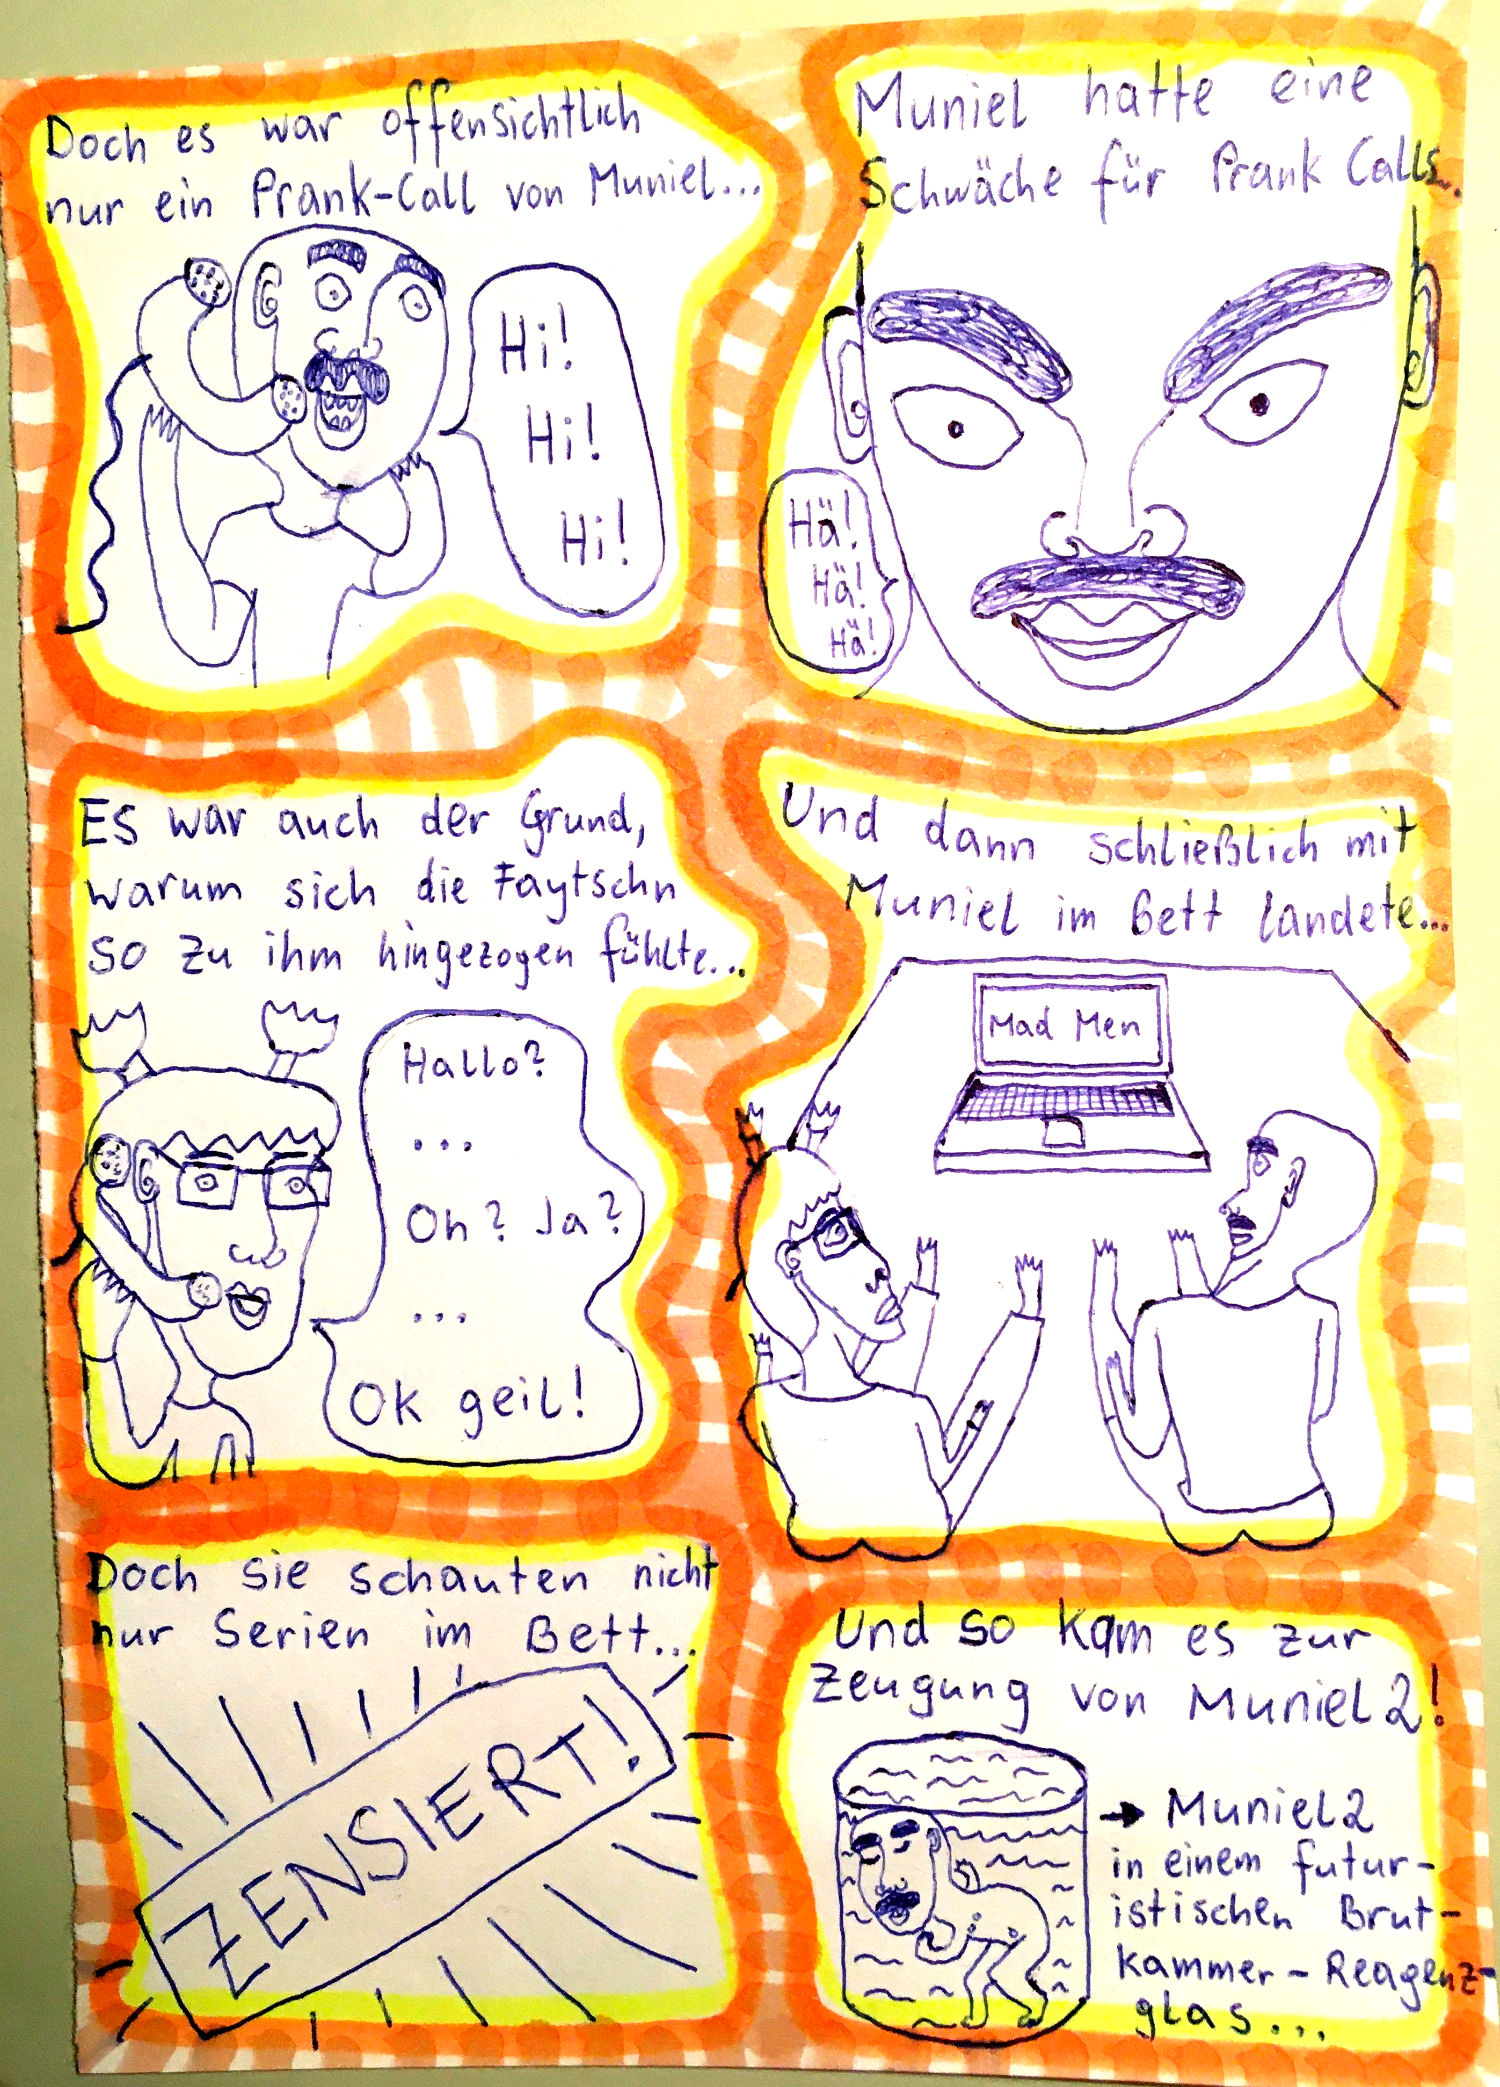 Doch es war offensichtlich
nur ein Prank-Call von Muniel...
Hi!
Hi!
Hi!
Muniel hatte eine
Schwäche für Prank Calls...
Hä!
Hä!
Hä!
Es war auch der Grund,
warum sich die Faytschn
so zu ihm hingezogen fühlte...
Hallo?
...
Oh? Ja?
...
Ok geil!
Und dann schließlich mit
Muniel im Bett landete...
Mad Men
Doch sie schauten nicht
nur Serien im Bett...
ZENSIERT!
Und so kam es zur
Zeugung von Muniel 2!
→ Muniel 2
in einem futur-
istischen Brut-
kammer-Reagenz-
glas...